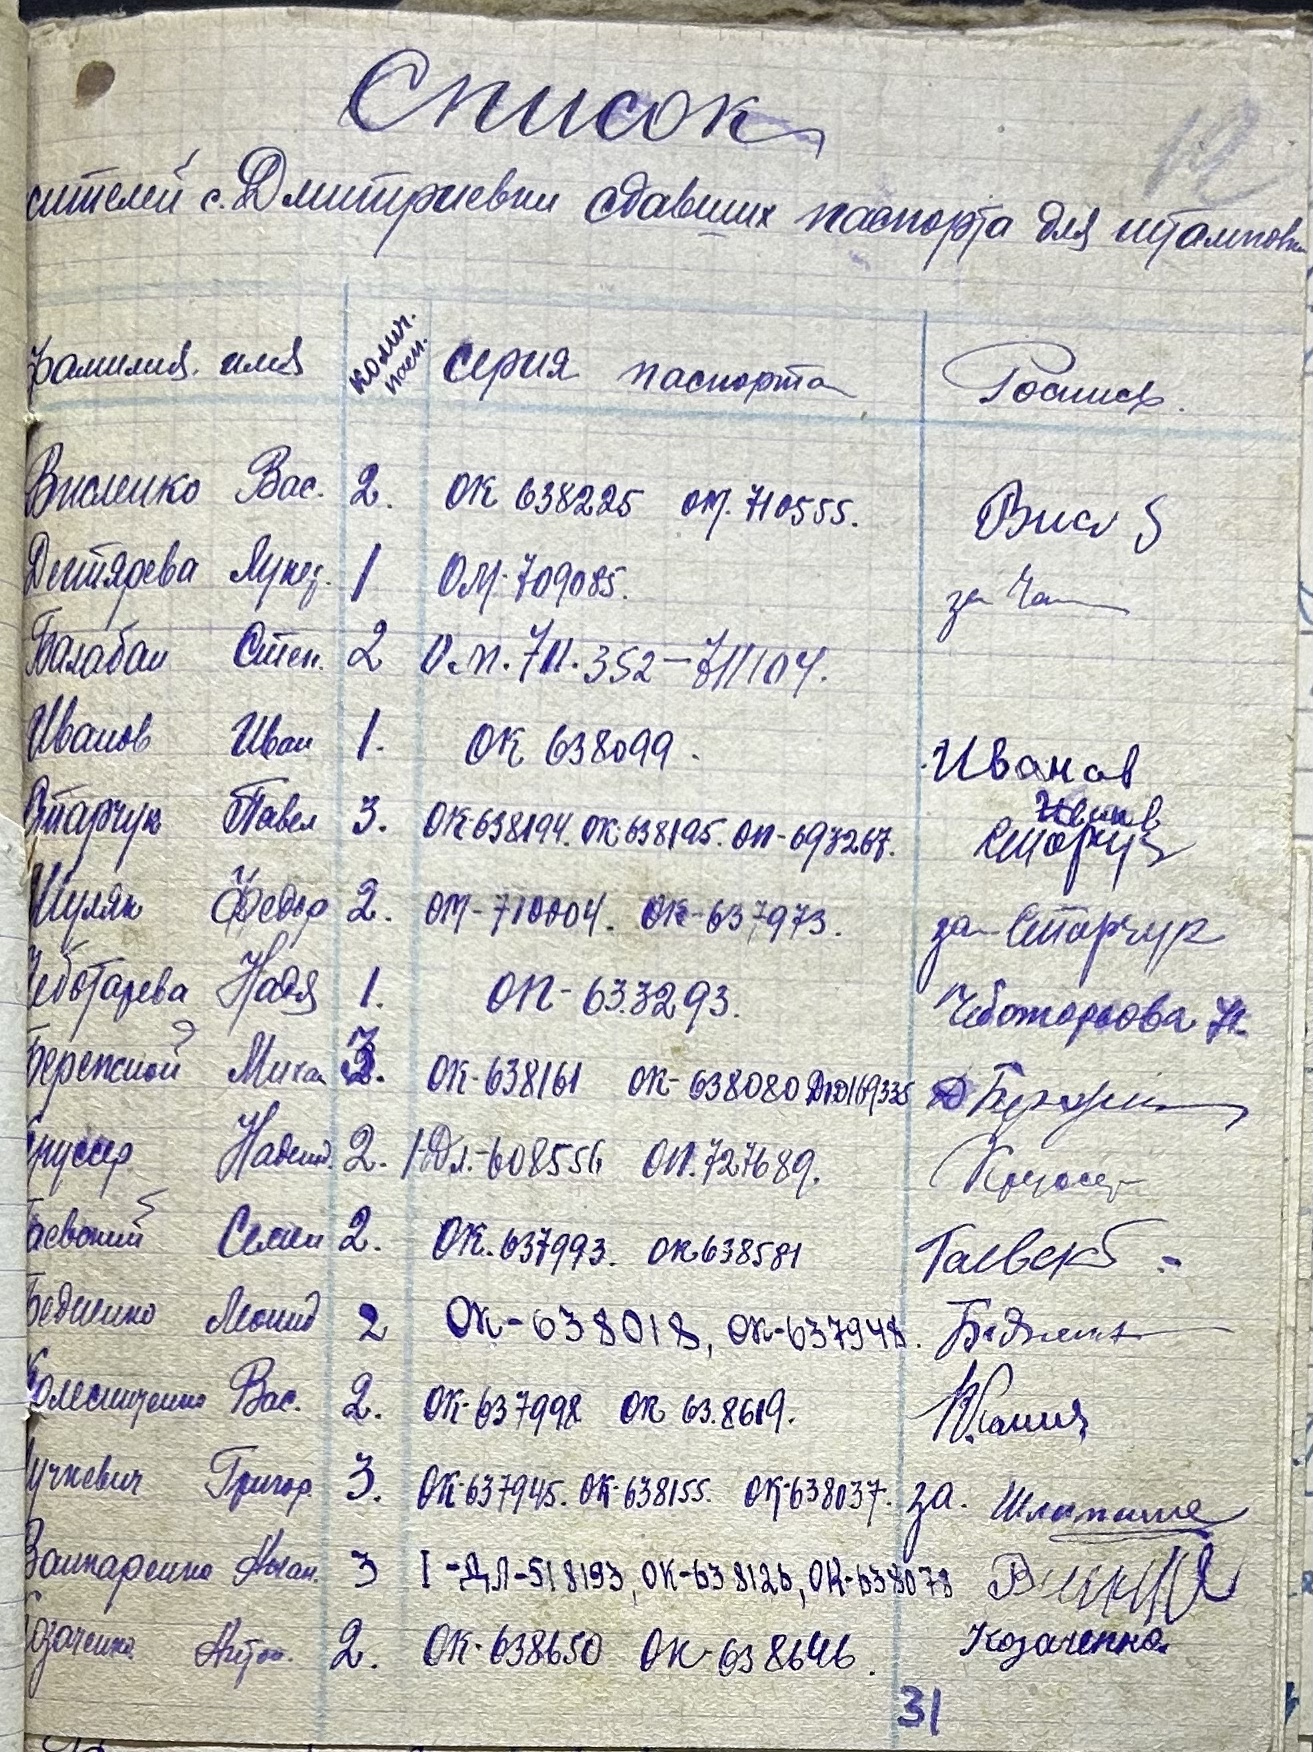 Список
жителей с. Дмитриевки сдавших паспорта для штамповки
Фамилия, имя колич. пасп. серия паспорта Роспись
Висленко Вас. 2. ОК 638225 ОМ. 710555. Висл
Дегтярева Лукер. 1 ОМ-709085. за
Балабан Степ. 2 О.М. 711.352 — 711104.
Иванов Иван 1. ОК 638099. Иванов
Иванов
Старчук Павел 3. ОК 638194. ОК 638195. ОП-697267. Старчук
Шуляк Федор 2. ОМ-710004. ОК-637973. за Старчук
Чеботарева Надя 1. ОП-633293. Чеботорьова Н.
Бережной Михаи 3. ОК-638161 ОК-638080
Круссер Надежд. 2. I-ДЛ.-608556 ОП.727689. Круссер
Гаевский Семен 2. ОК.637993. ОК 638581 Гаевск
Бедненко Леонид 2 ОК-638018, ОК-637948.
Колесниченко Вас. 2. ОК-637998 ОК 638619.
Лучкевич Григор. 3. ОК-637945. ОК-638155. ОК-638037. за.
3 I-ДЛ-518193, ОК-638126, ОК-638078
Козаченко Антон. 2. ОК-638650 ОК-638646. Козаченко
31